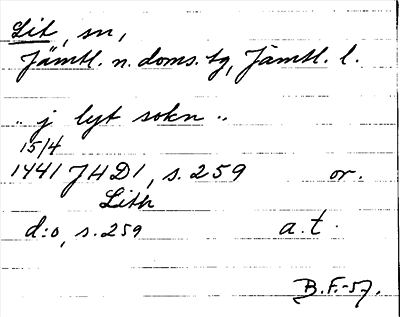 Lit, sn,
Jämtl. n. doms. tg, Jämtl. l.
„ j lyt sokn „
15/4
1441 JHD1, s. 259 or.
Lith
d:o, s. 259 a. t.
B. F. -57.